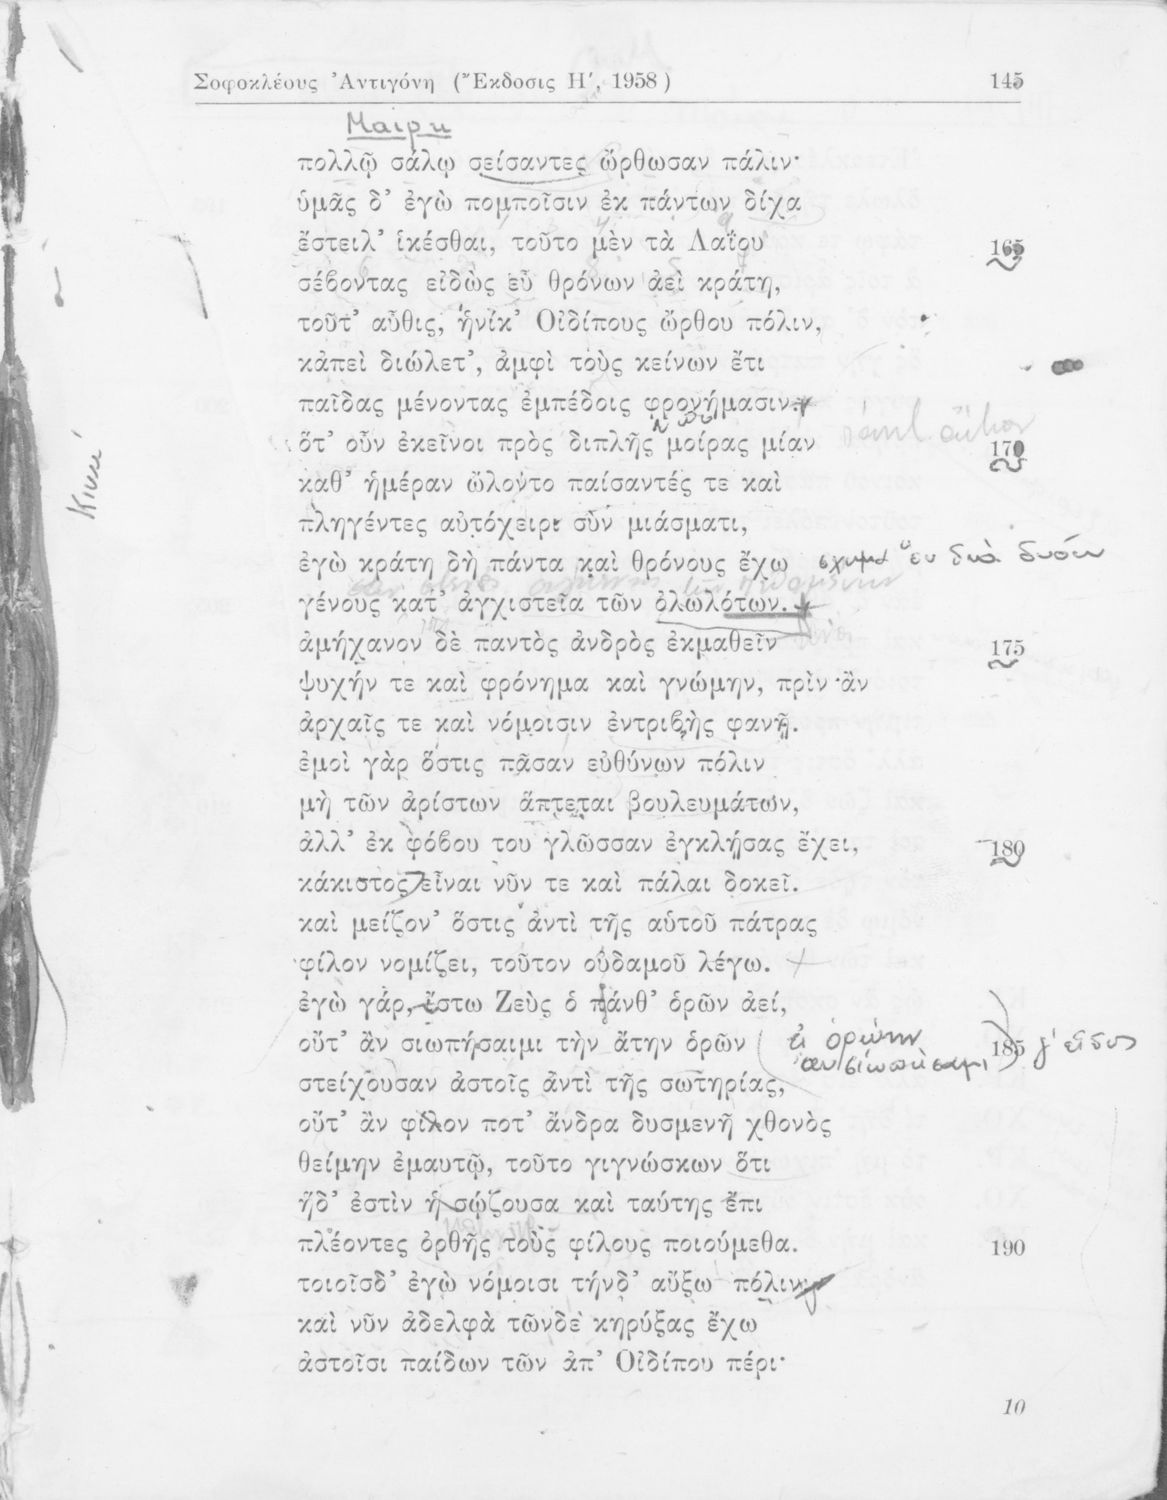 Σοφοκλέους Ἀντιγόνη (Ἔκδοσις Η΄, 1958) 145
Μαίρη
πολλῷ σάλῳ σείσαντες ὤρθωσαν πάλιν·
ὑμᾶς δ’ ἐγὼ πομποῖσιν ἐκ πάντων δίχα
ἔστειλ’ ἱκέσθαι, τοῦτο μὲν τὰ Λαΐου 165
σέβοντας εἰδὼς εὖ θρόνων ἀεὶ κράτη,
τοῦτ’ αὖθις, ἡνίκ’ Οἰδίπους ὤρθου πόλιν,
κἀπεὶ διώλετ’, ἀμφὶ τοὺς κείνων ἔτι
παῖδας μένοντας ἐμπέδοις φρονήμασιν.
ὅτ’ οὖν ἐκεῖνοι πρὸς διπλῆς μοίρας μίαν 170
καθ’ ἡμέραν ὤλοντο παίσαντές τε καὶ
πληγέντες αὐτόχειρι σὺν μιάσματι,
ἐγὼ κράτη δὴ πάντα καὶ θρόνους ἔχω σχῆμα ἓν διὰ δυοῖν
γένους κατ’ ἀγχιστεῖα τῶν ὀλωλότων.
ἀμήχανον δὲ παντὸς ἀνδρὸς ἐκμαθεῖν 175
ψυχήν τε καὶ φρόνημα καὶ γνώμην, πρὶν ἂν
ἀρχαῖς τε καὶ νόμοισιν ἐντριβὴς φανῇ.
ἐμοὶ γὰρ ὅστις πᾶσαν εὐθύνων πόλιν
μὴ τῶν ἀρίστων ἅπτεται βουλευμάτων,
ἀλλ’ ἐκ φόβου του γλῶσσαν ἐγκλῄσας ἔχει, 180
κάκιστος εἶναι νῦν τε καὶ πάλαι δοκεῖ.
καὶ μείζον’ ὅστις ἀντὶ τῆς αὑτοῦ πάτρας
φίλον νομίζει, τοῦτον οὐδαμοῦ λέγω.
ἐγὼ γάρ, ἴστω Ζεὺς ὁ πάνθ’ ὁρῶν ἀεί,
οὔτ’ ἂν σιωπήσαιμι τὴν ἄτην ὁρῶν εἰ ὁρῴην 185 γ΄ εἶδος
ἂν σιωπήσαιμι
στείχουσαν ἀστοῖς ἀντὶ τῆς σωτηρίας,
οὔτ’ ἂν φίλον ποτ’ ἄνδρα δυσμενῆ χθονὸς
θείμην ἐμαυτῷ, τοῦτο γιγνώσκων ὅτι
ἥδ’ ἐστὶν ἡ σῴζουσα καὶ ταύτης ἔπι
πλέοντες ὀρθῆς τοὺς φίλους ποιούμεθα. 190
τοιοῖσδ’ ἐγὼ νόμοισι τήνδ’ αὔξω πόλιν,
καὶ νῦν ἀδελφὰ τῶνδε κηρύξας ἔχω
ἀστοῖσι παίδων τῶν ἀπ’ Οἰδίπου πέρι·
10